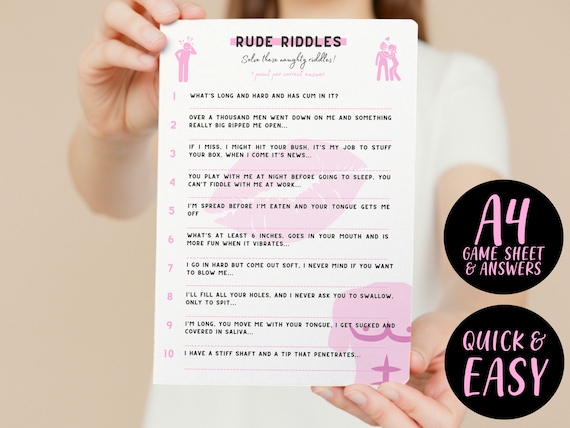 RUDE RIDDLES
Solve these naughty riddles!
1 point per correct answer
1 WHAT'S LONG AND HARD AND HAS CUM IN IT?
2 OVER A THOUSAND MEN WENT DOWN ON ME AND SOMETHING
REALLY BIG RIPPED ME OPEN...
3 IF I MISS, I MIGHT HIT YOUR BUSH, IT'S MY JOB TO STUFF
YOUR BOX, WHEN I COME IT'S NEWS...
4 YOU PLAY WITH ME AT NIGHT BEFORE GOING TO SLEEP, YOU
CAN'T FIDDLE WITH ME AT WORK...
5 I'M SPREAD BEFORE I'M EATEN AND YOUR TONGUE GETS ME
OFF
6 WHAT'S AT LEAST 6 INCHES, GOES IN YOUR MOUTH AND IS
MORE FUN WHEN IT VIBRATES...
7 I GO IN HARD BUT COME OUT SOFT, I NEVER MIND IF YOU WANT
TO BLOW ME...
8 I'LL FILL ALL YOUR HOLES, AND I NEVER ASK YOU TO SWALLOW,
ONLY TO SPIT...
9 I'M LONG, YOU MOVE ME WITH YOUR TONGUE, I GET SUCKED AND
COVERED IN SALIVA...
10 I HAVE A STIFF SHAFT AND A TIP THAT PENETRATES...
A4
GAME SHEET
& ANSWERS
QUICK &
EASY